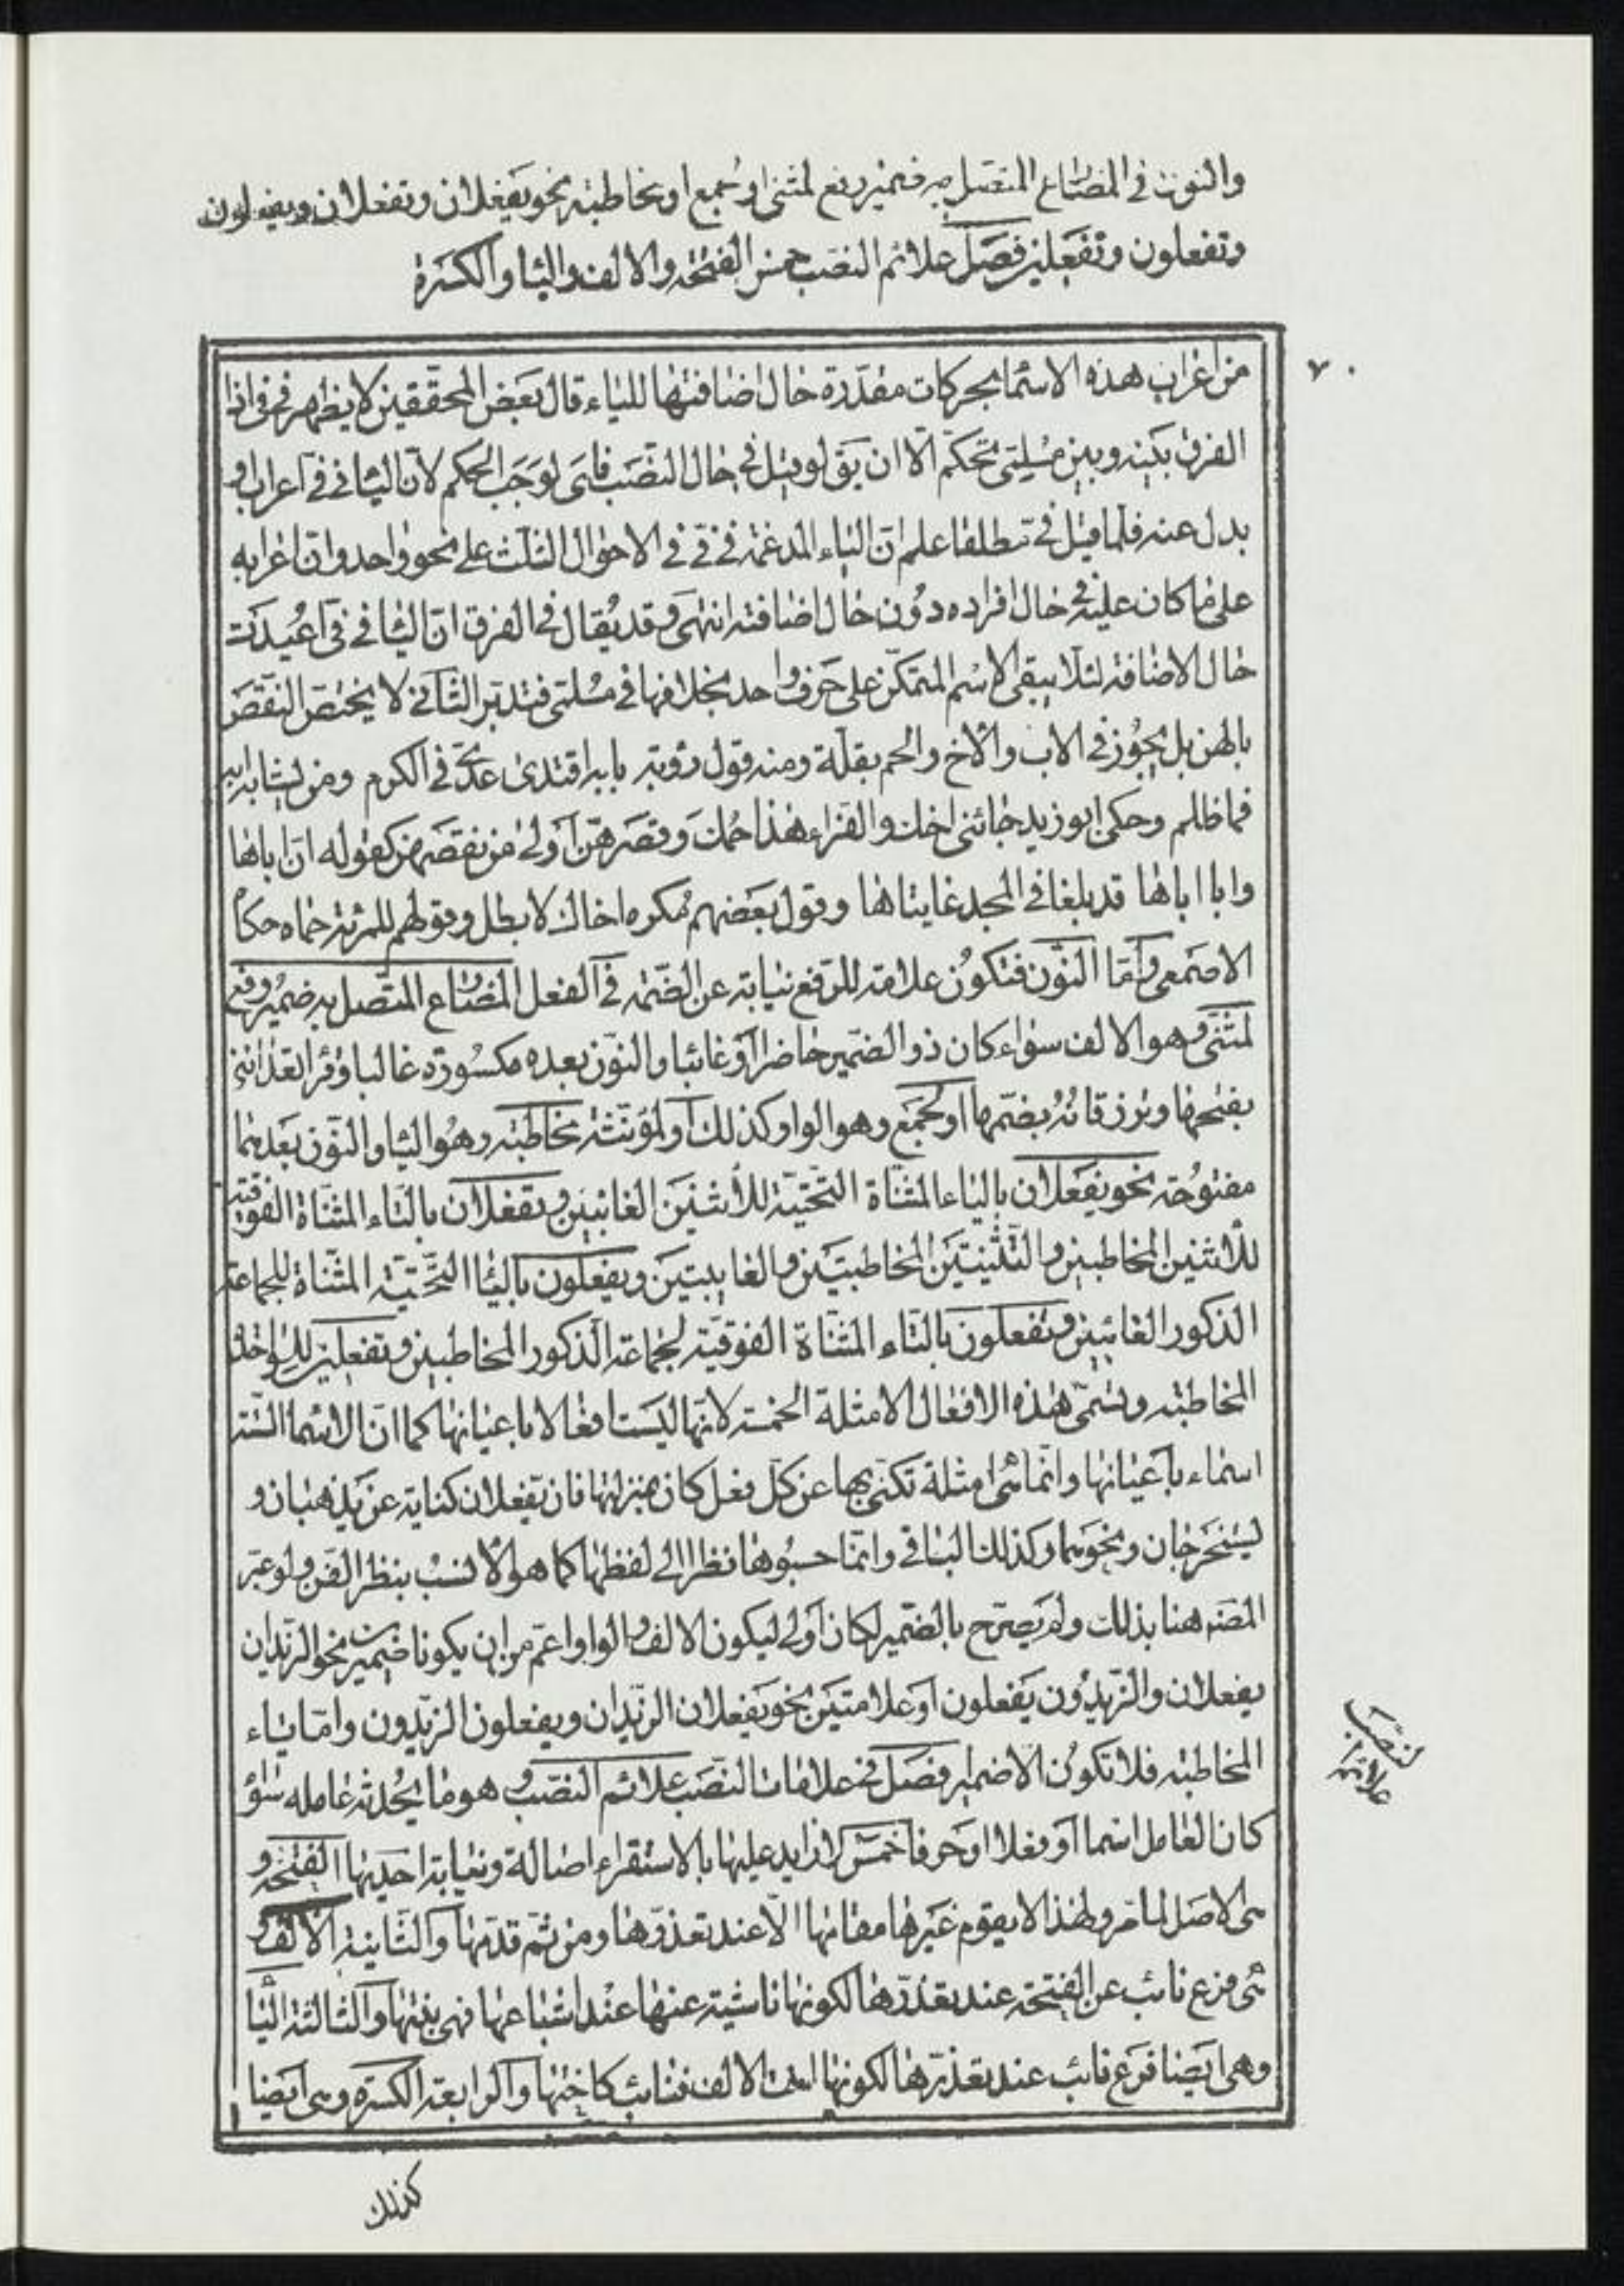 والنون في المضارع المتصل به ضمير رفع لمثنى او جمع او مخاطبة نحو يفعلان وتفعلان ويفعلون
وتفعلون وتفعلين فصل علائم النصب خمس الفتحة والالف والياء والكسرة
٧٠
من اعراب هذه الاسماء بحركات مقدرة حال اضافتها للياء قال بعض المحققين لا يظهر في في اذا
الفرق بينه وبين مسلمي تحكم الا ان يق لو قيل في حال النصب فاي لوجب الحكم لان الياء في في اعراب او
بدل عنه فلما قيل في مطلقا علم ان الياء المدغمة في في في الاحوال الثلث على نحو واحد وان اعرابه
على ما كان عليه في حال افراده دون حال اضافته انتهى وقد يقال في الفرق ان الياء في في اعيدت
حال الاضافة لئلا يبقى الاسم المتمكن على حرف واحد بخلافها في مسلمي فتدبر الثاني لا يختص النقص
بالهن بل يجوز في الاب والاخ والحم بقلة ومنه قول رؤبة بابه اقتدى عدي في الكرم ومن يشابه ابه
فما ظلم وحكى ابو زيد جائني اخك والفراء هذا حمك وقصرهن اولى من نقصهن كقوله ان اباها
وابا اباها قد بلغا في المجد غايتاها وقول بعضهم مكره اخاك لا بطل وقولهم للمرئة حماه حكاه
الاصمعي واما النون فتكون علامة للرفع نيابة عن الضمة في الفعل المضارع المتصل به ضمير رفع
لمثنى وهو الالف سواء كان ذو الضمير حاضرا او غائبا والنون بعده مكسورة غالبا وقرا اتعدانني
بفتحها وترزقانه بضمها او لجمع وهو الواو كذلك او لمؤنثة مخاطبة وهو الياء والنون بعدهما
مفتوحة نحو يفعلان بالياء المثناة التحتية للاثنين الغائبين وتفعلان بالتاء المثناة الفوقية
للاثنين المخاطبين والثنتين المخاطبتين والغايبتين ويفعلون بالياء التحتية المثناة لجماعة
الذكور الغائبين وتفعلون بالتاء المثناة الفوقية لجماعة الذكور المخاطبين وتفعلين للواحدة
المخاطبة وتسمى هذه الافعال الامثلة الخمسة لانها ليست افعالا باعيانها كما ان الاسماء الستة
اسماء باعيانها وانما هي امثلة تكنى بها عن كل فعل كان بمنزلتها فان يفعلان كناية عن يذهبان و
يستخرجان ونحوهما وكذلك البواقي وانما حسبوها نظرا الى لفظها كما هو الانسب بنظر الفن ولو عبر
المصنه هنا بذلك ولم يصرح بالضمير لكان اولى ليكون الالف والواو اعم من ان يكونا ضميرين نحو الزيدان
يفعلان والزيدون يفعلون او علامتين نحو يفعلان الزيدان ويفعلون الزيدون واما ياء
المخاطبة فلا تكون الا ضميرا فصل في علامات النصب علائم النصب وهو ما يحدثه عامله سواء
كان العامل اسما او فعلا او حرفا خمس لا زايد عليها بالاستقراء اصالة ونيابة احديها الفتحة و
هي الاصل لما مر ولهذا لا يقوم غيرها مقامها الا عند تعذرها ومن ثم قدمها والثانية الالف و
هي فرع نائب عن الفتحة عند تعذرها لكونها ناشية عنها عند اشباعها فهي بنتها والثالثة الياء
وهي ايضا فرع نائب عند تعذرها لكونها اخت الالف فتنائب كاختها والرابعة الكسرة وهي ايضا
علائم النصب
كذلك